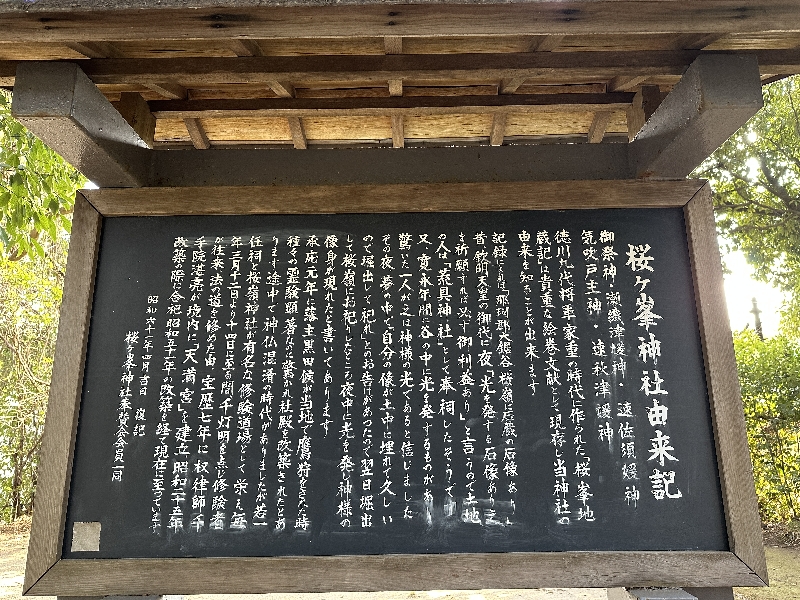 桜ヶ峯神社由来記
御祭神・瀬織津媛神・速佐須媛神
気吹戸主神・速秋津媛神
徳川九代将軍家重の時代に作られた「桜峯地
蔵記」は貴重な絵巻文献として現存し当神社の
由来を知ることが出来ます
記録によれば「那珂郡 桜嶺に石像あり
昔、欽明天皇の御代に夜、光を発する石像あり之
を祈願すれば必ず御利益あり」と言うので土地
の人は「荒具神社」として奉祠したそうです
又、寛永年間に谷の中に光を発するものがあり
驚いた一人が之は神様の光であると信じました
その夜、夢の中で、自分の像が土中に埋れて久しい
ので堀出して祀れ」とのお告げがあったので翌日堀出
して桜嶺にお祀りしたところ夜中に光を発し神様の
像身が現れたと書いてあります
承応元年に藩主黒田候が当地で鷹狩をされた時
種々の霊験顕著なのに驚かれ社殿を改築されたとあ
ります 途中で神仏混淆の時代がありましたが若一
任祠と桜嶺神社が有名な修験道場として栄え毎
年三月十二日より十四日に至る間千灯明を点じ修験者
が往来法の道を修めた由 宝歴七年に权律師千
手院湛亮が境内に「天満宮」を建立 昭和二十五年
改築の際に合祀 昭和五十六年の改築を経て現在に至っています
昭和六十二年四月吉日 復記
桜ヶ峯神社奉賛会会員一同